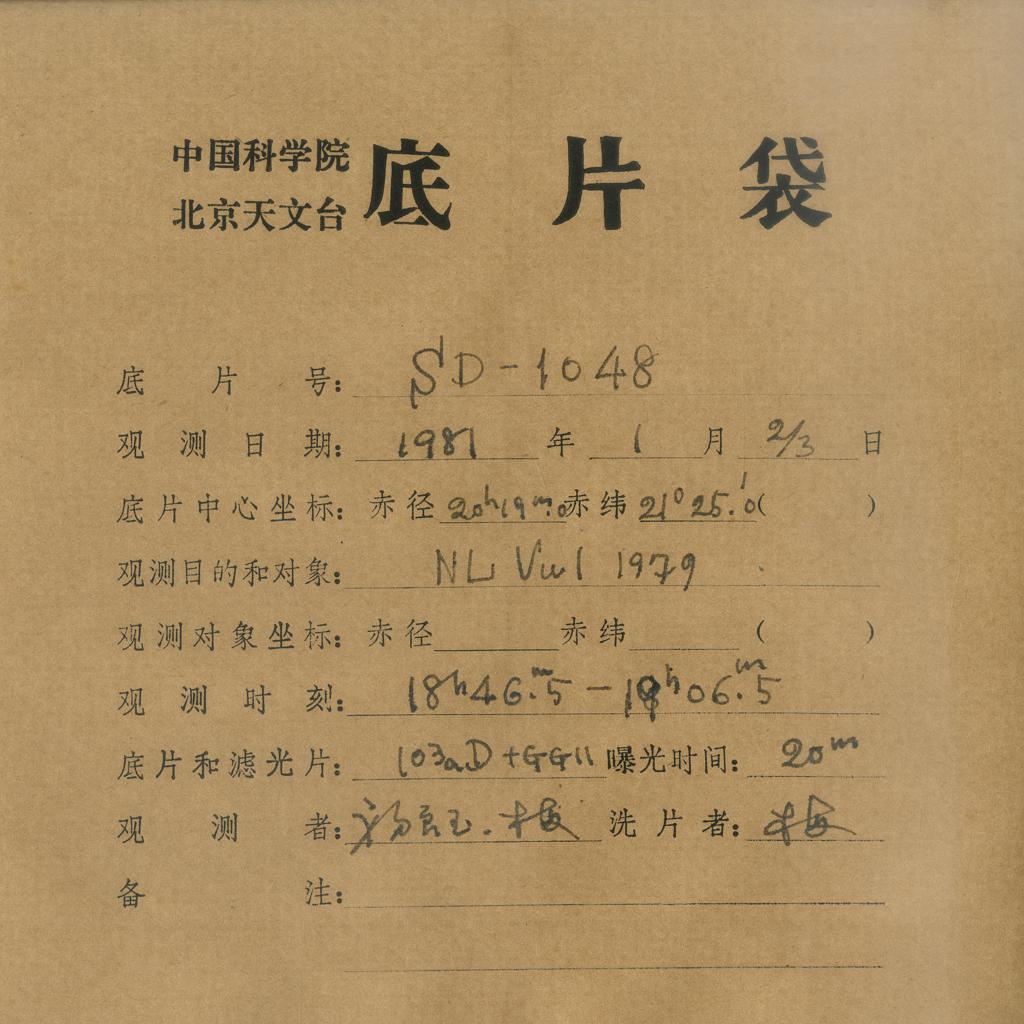 中国科学院
北京天文台
底片袋
底片号: SD-1048
观测日期: 1981年 1月 2/3日
底片中心坐标: 赤径 20h19m.0 赤纬 21°25.'0 ( )
观测目的和对象: NL Vul 1979
观测对象坐标: 赤径 赤纬 ( )
观测时刻: 18h46.m5 - 19h06.m5
底片和滤光片: 103aD+GG11 曝光时间: 20m
观测者: 梅 洗片者: 梅
备注: